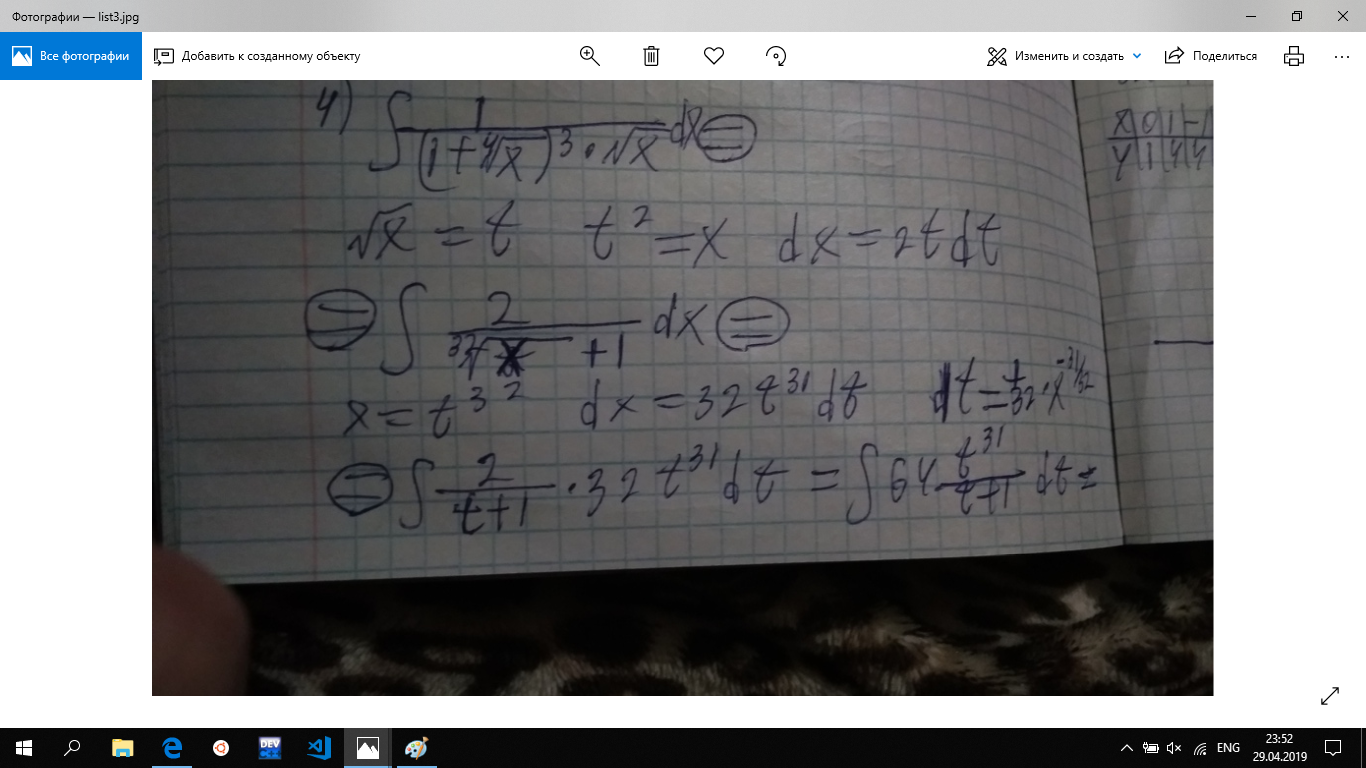 Фотографии — list3.jpg
Все фотографии Добавить к созданному объекту Изменить и создать Поделиться
4) ∫ 1/((1+∜x)³·√x) dx =
x 0 1 -1
y 1 4 4
√x = t t² = x dx = 2t dt
= ∫ 2/(³²√x +1) dx =
x = t³² dx = 32t³¹dt dt = 1/32·x^(-31/32)
= ∫ 2/(t+1) · 32t³¹dt = ∫ 64 t³¹/(t+1) dt =
DEV C++ ENG 23:52
29.04.2019